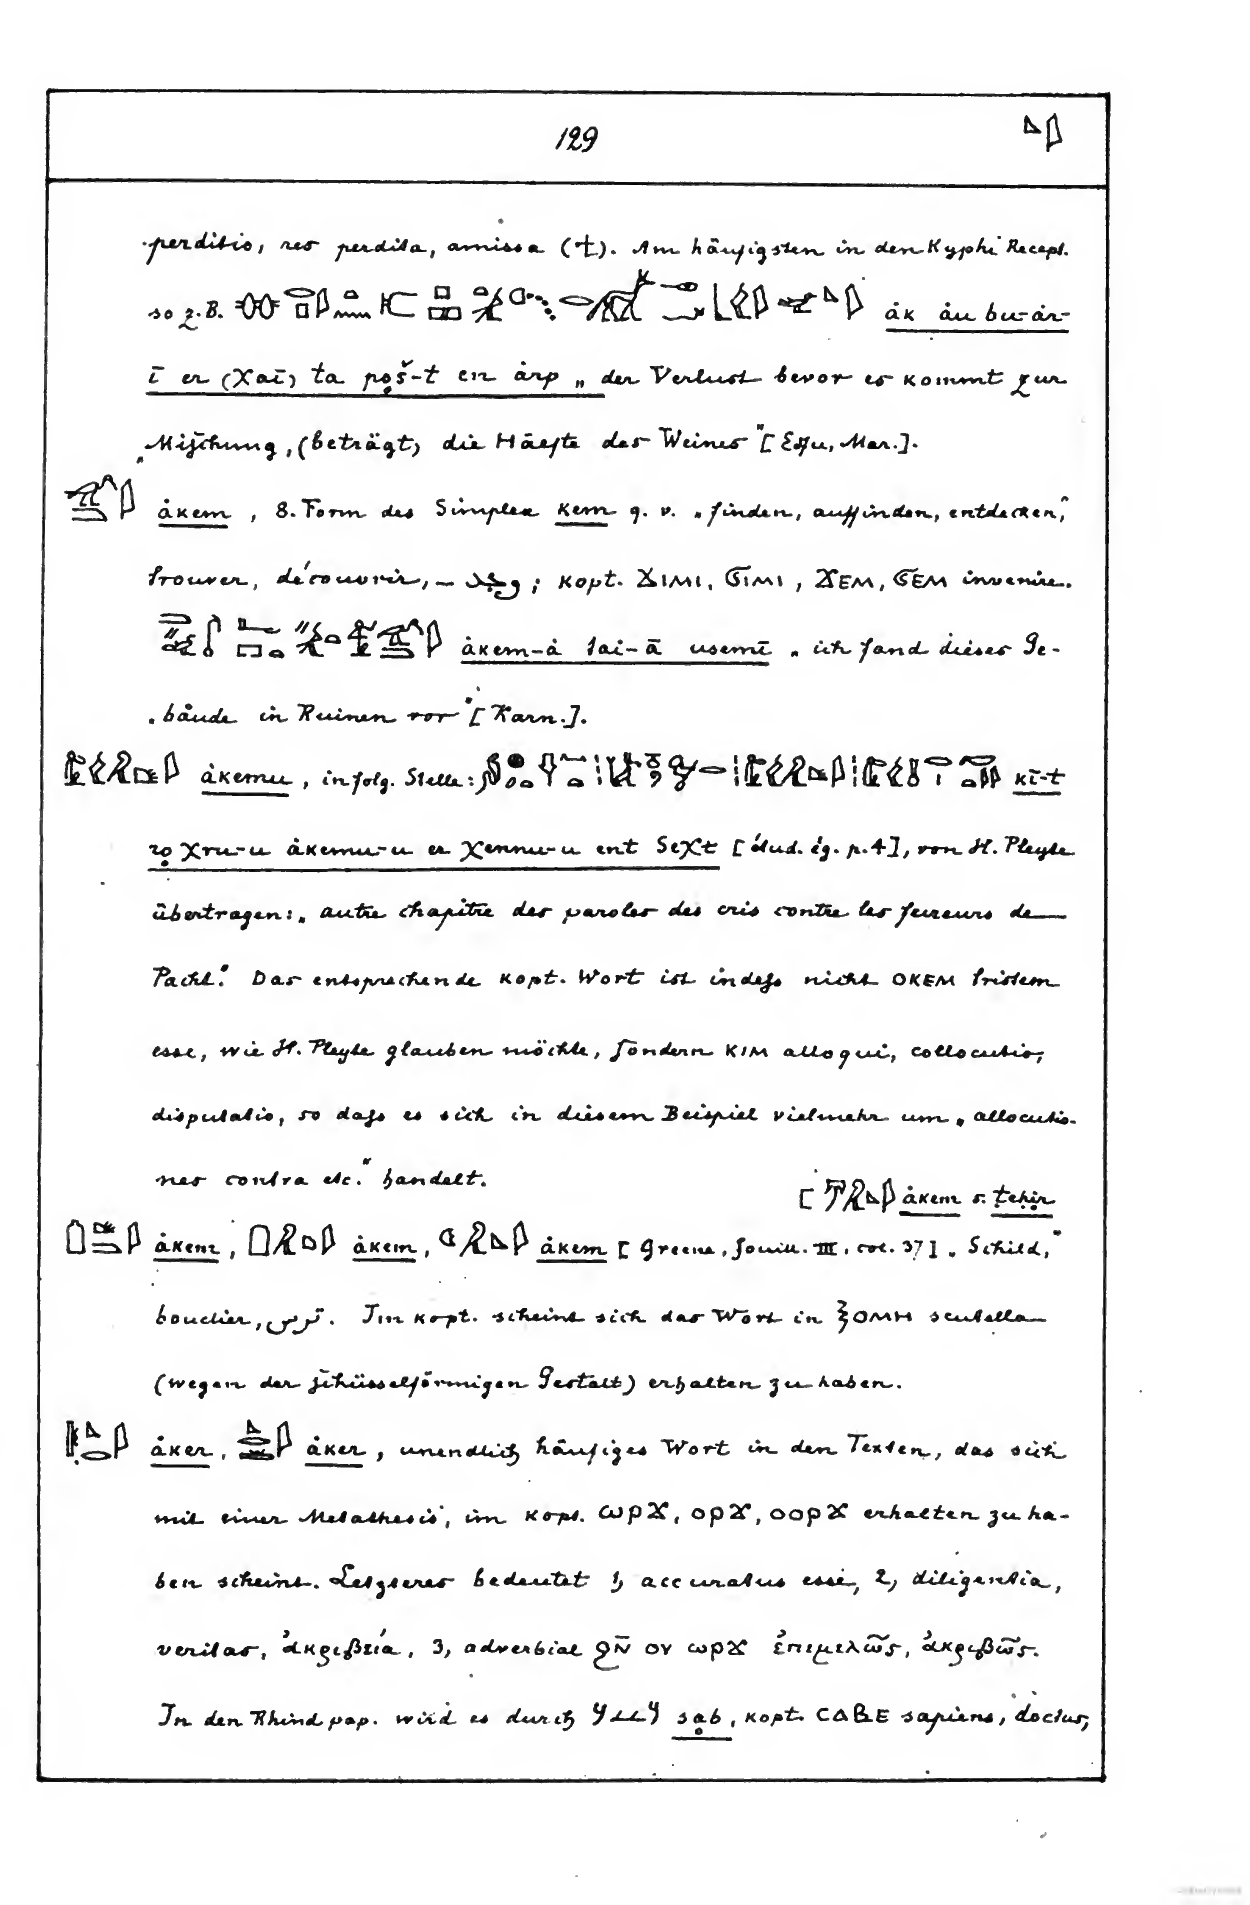 129
perditio, res perdita, amissa (t). Am häufigsten in den Kyphi Recept.
so z. B. ȧk ȧu bu-ȧr-
ī er (χaī) ta pọš-t en ȧrp „der Verlust bevor es kommt zur
„Mischung, (beträgt) die Hälfte des Weines" [Edfu, Mar.].
ȧkem, 8. Form des Simplex kem q. v. „finden, auffinden, entdecken,"
trouver, découvrir, – وجد; kopt. ϪΙΜΙ, ϬΙΜΙ, ϪΕΜ, ϬΕΜ invenire.
ȧkem-ȧ tai-ā usemī „ich fand dieses Ge-
„bäude in Ruinen vor" [Karn.].
ȧkemu, in folg. Stelle: kī-t
rọ χru-u ȧkemu-u er χennu-u ent Seχt [étud. ég. p. 4], von H. Pleyte
übertragen: „autre chapitre des paroles des cris contre les fureurs de
Pacht." Das entsprechende kopt. Wort ist indeß nicht ΟΚΕΜ tristem
esse, wie H. Pleyte glauben möchte, sondern ΚΙΜ alloqui, collocutio,
disputatio, so daß es sich in diesem Beispiel vielmehr um „allocutio-
nes contra etc." handelt.
[ ȧkem s. ṭeḥir
ȧkem, ȧkem, ȧkem [Greene, fouill. III. col. 37]. „Schild,"
bouclier, ترس. Im kopt. scheint sich das Wort in ϨΟΜΗ scutella
(wegen der schüsselförmigen Gestalt) erhalten zu haben.
ȧker, ȧker, unendlich häufiges Wort in den Texten, das sich
mit einer Metathesis, im kopt. ωρϫ, ορϫ, οορϫ erhalten zu ha-
ben scheint. Letzteres bedeutet 1, accuratus esse, 2, diligentia,
veritas, ἀκριβεία, 3, adverbial ϩⲛ̄ ου ωρϫ ἐπιμελῶς, ἀκριβῶς.
In den Rhind pap. wird es durch sạb, kopt. CABE sapiens, doctus,